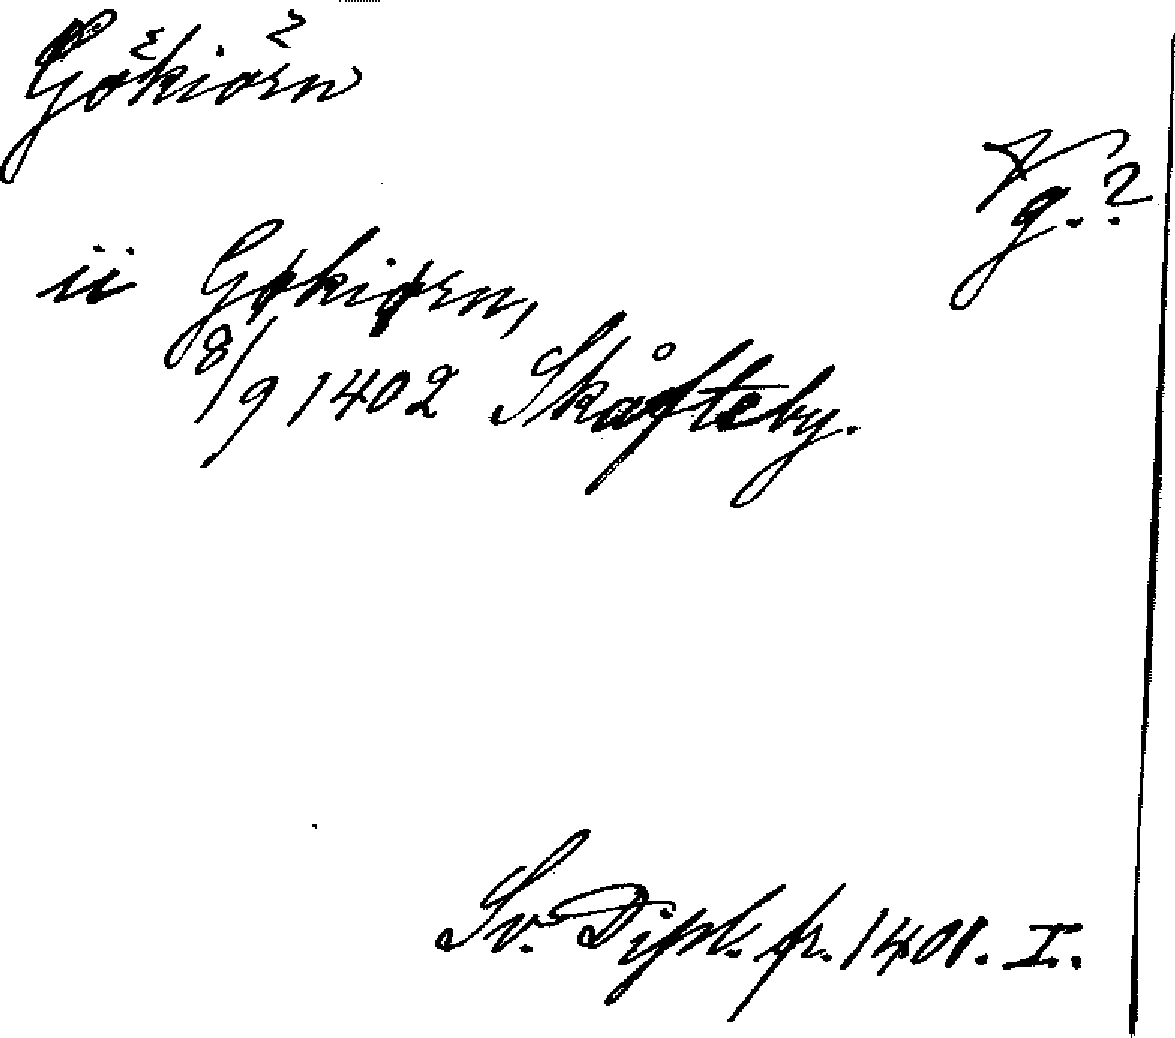 Gökiörn
Vg.?
ii Gøkiørn,
8/9 1402 Skåfteby.
Sv. Dipl. fr. 1401. I.